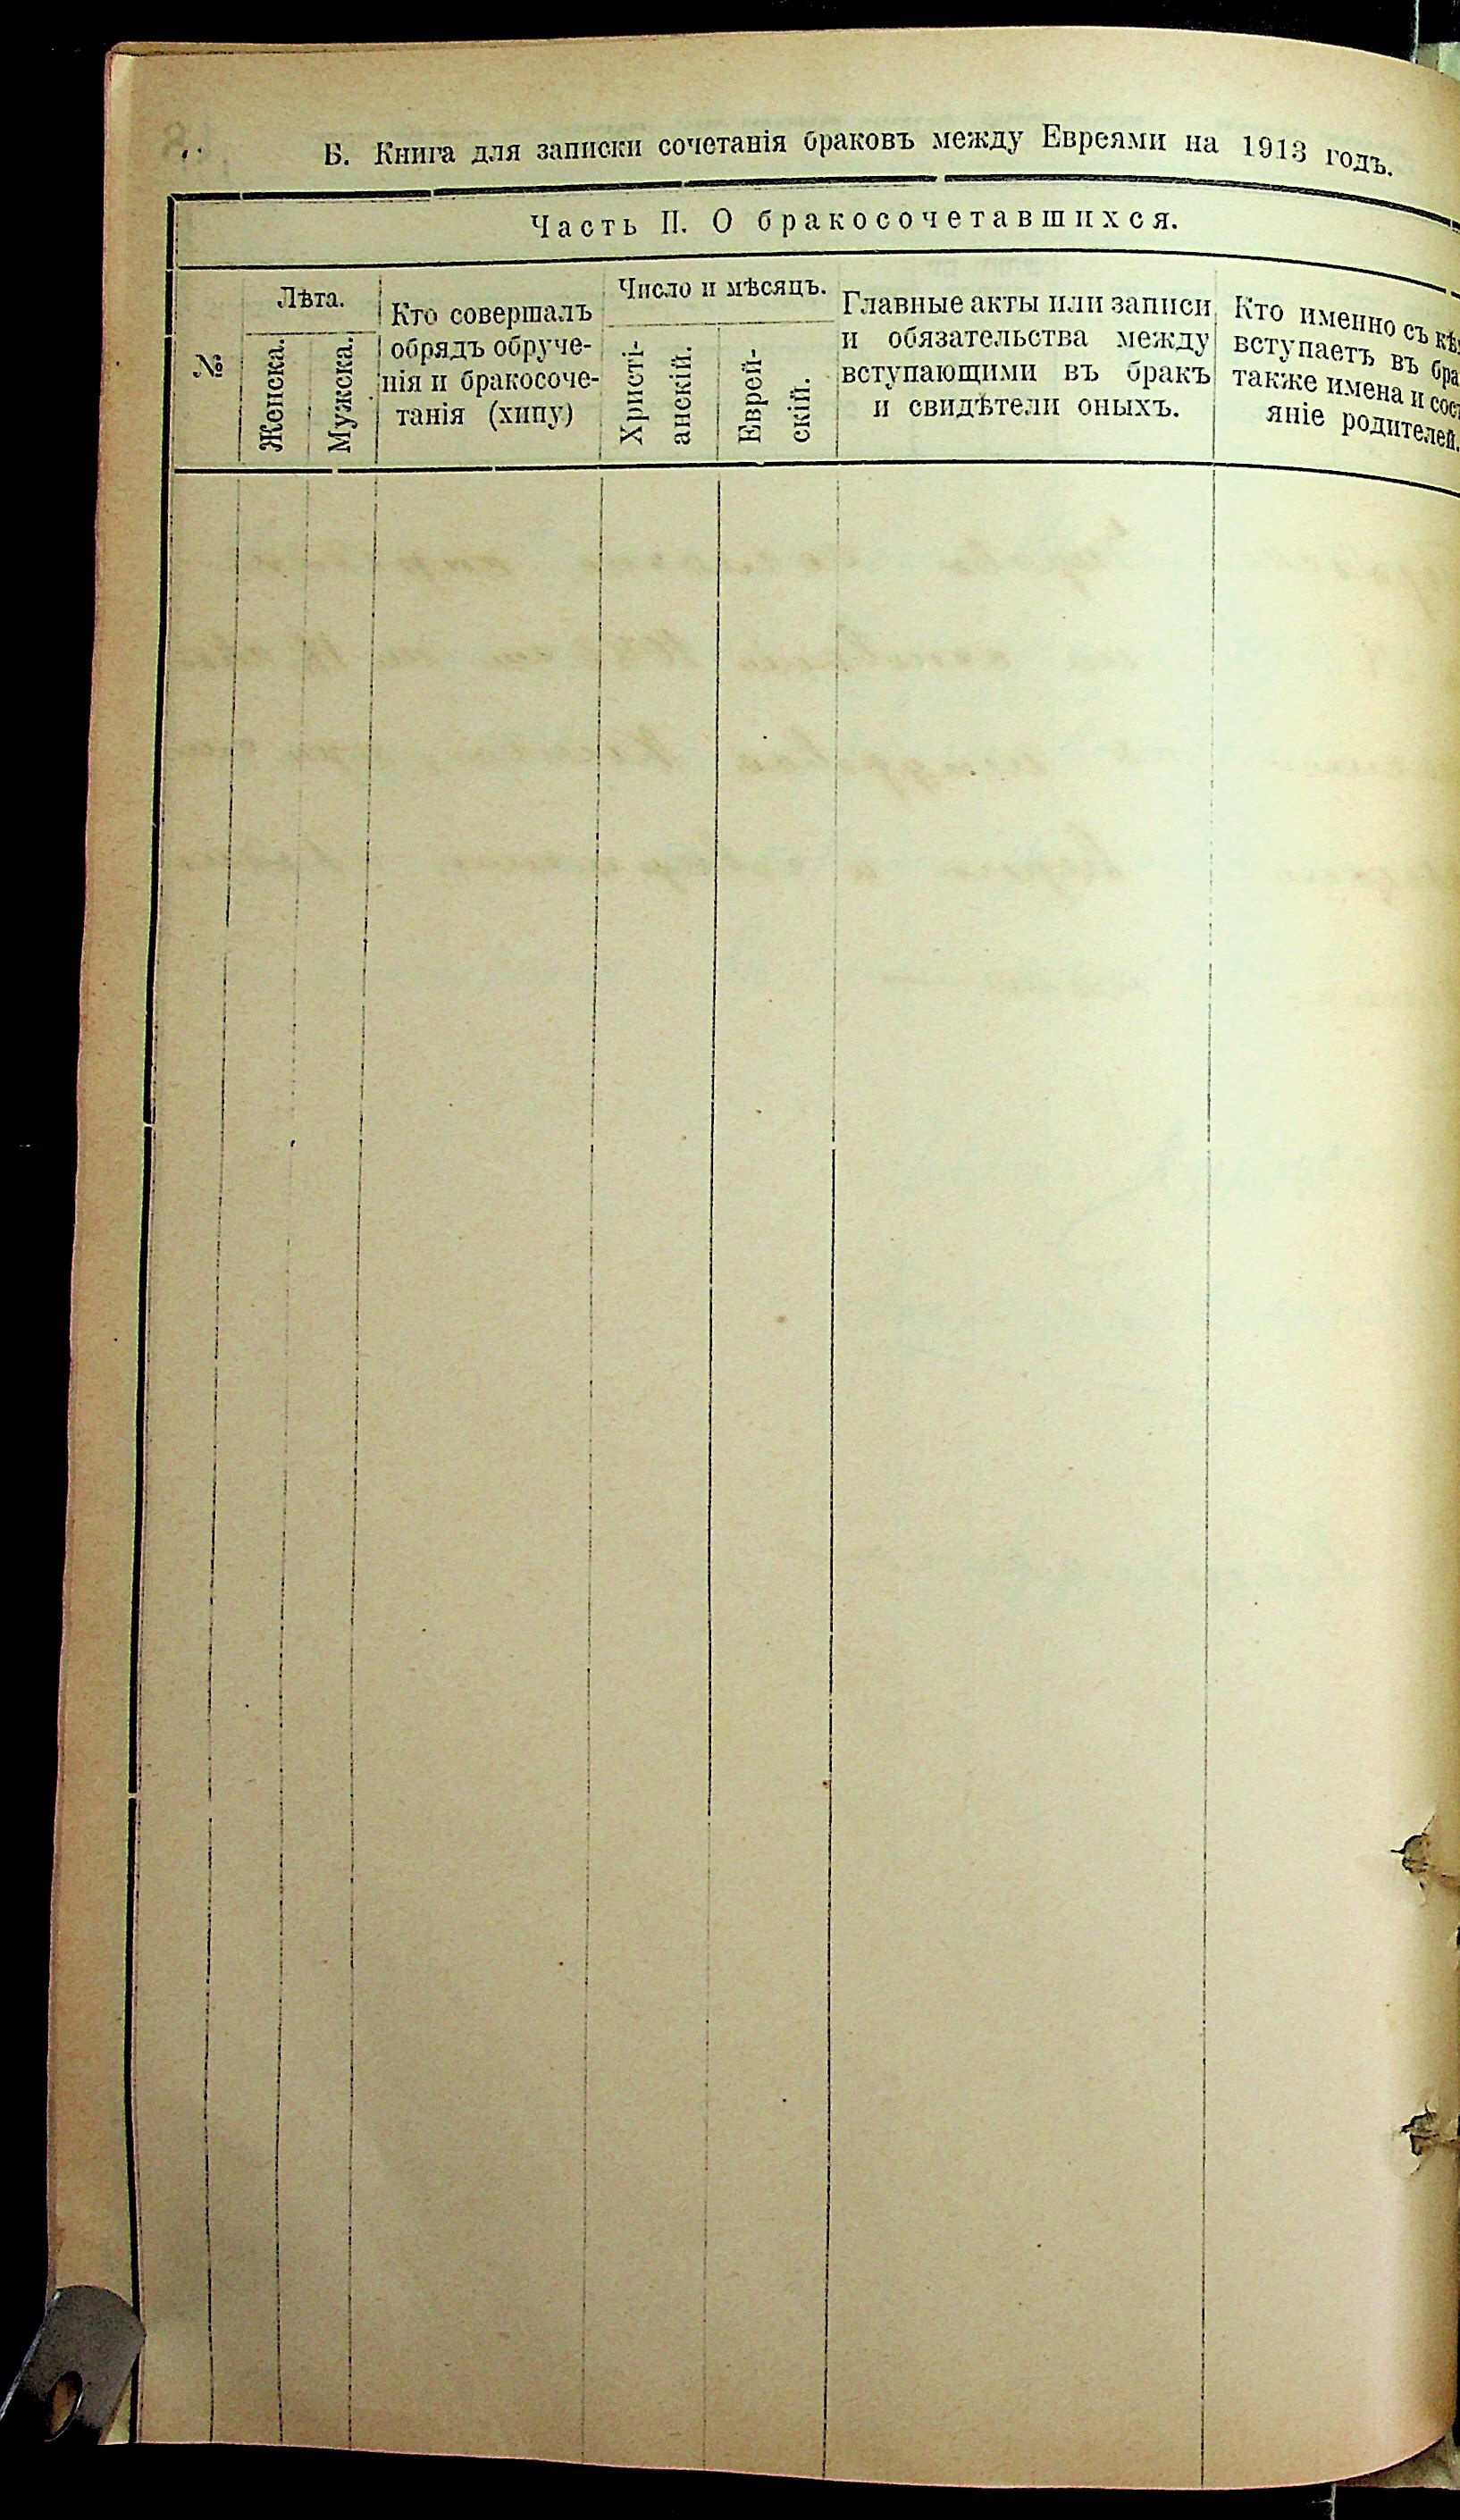 Б. Книга для записки сочетанія браковъ между Евреями на 1913 годъ.
Часть II. О бракосочетавшихся.
№
Лѣта.
Женска.
Мужска.
Кто совершалъ
обрядъ обруче-
нія и бракосоче-
танія (хипу)
Число и мѣсяцъ.
Христі-
анскій.
Еврей-
скій.
Главные акты или записи
и обязательства между
вступающими въ бракъ
и свидѣтели оныхъ.
Кто именно съ
вступаетъ въ
также имена и
яніе родителей.